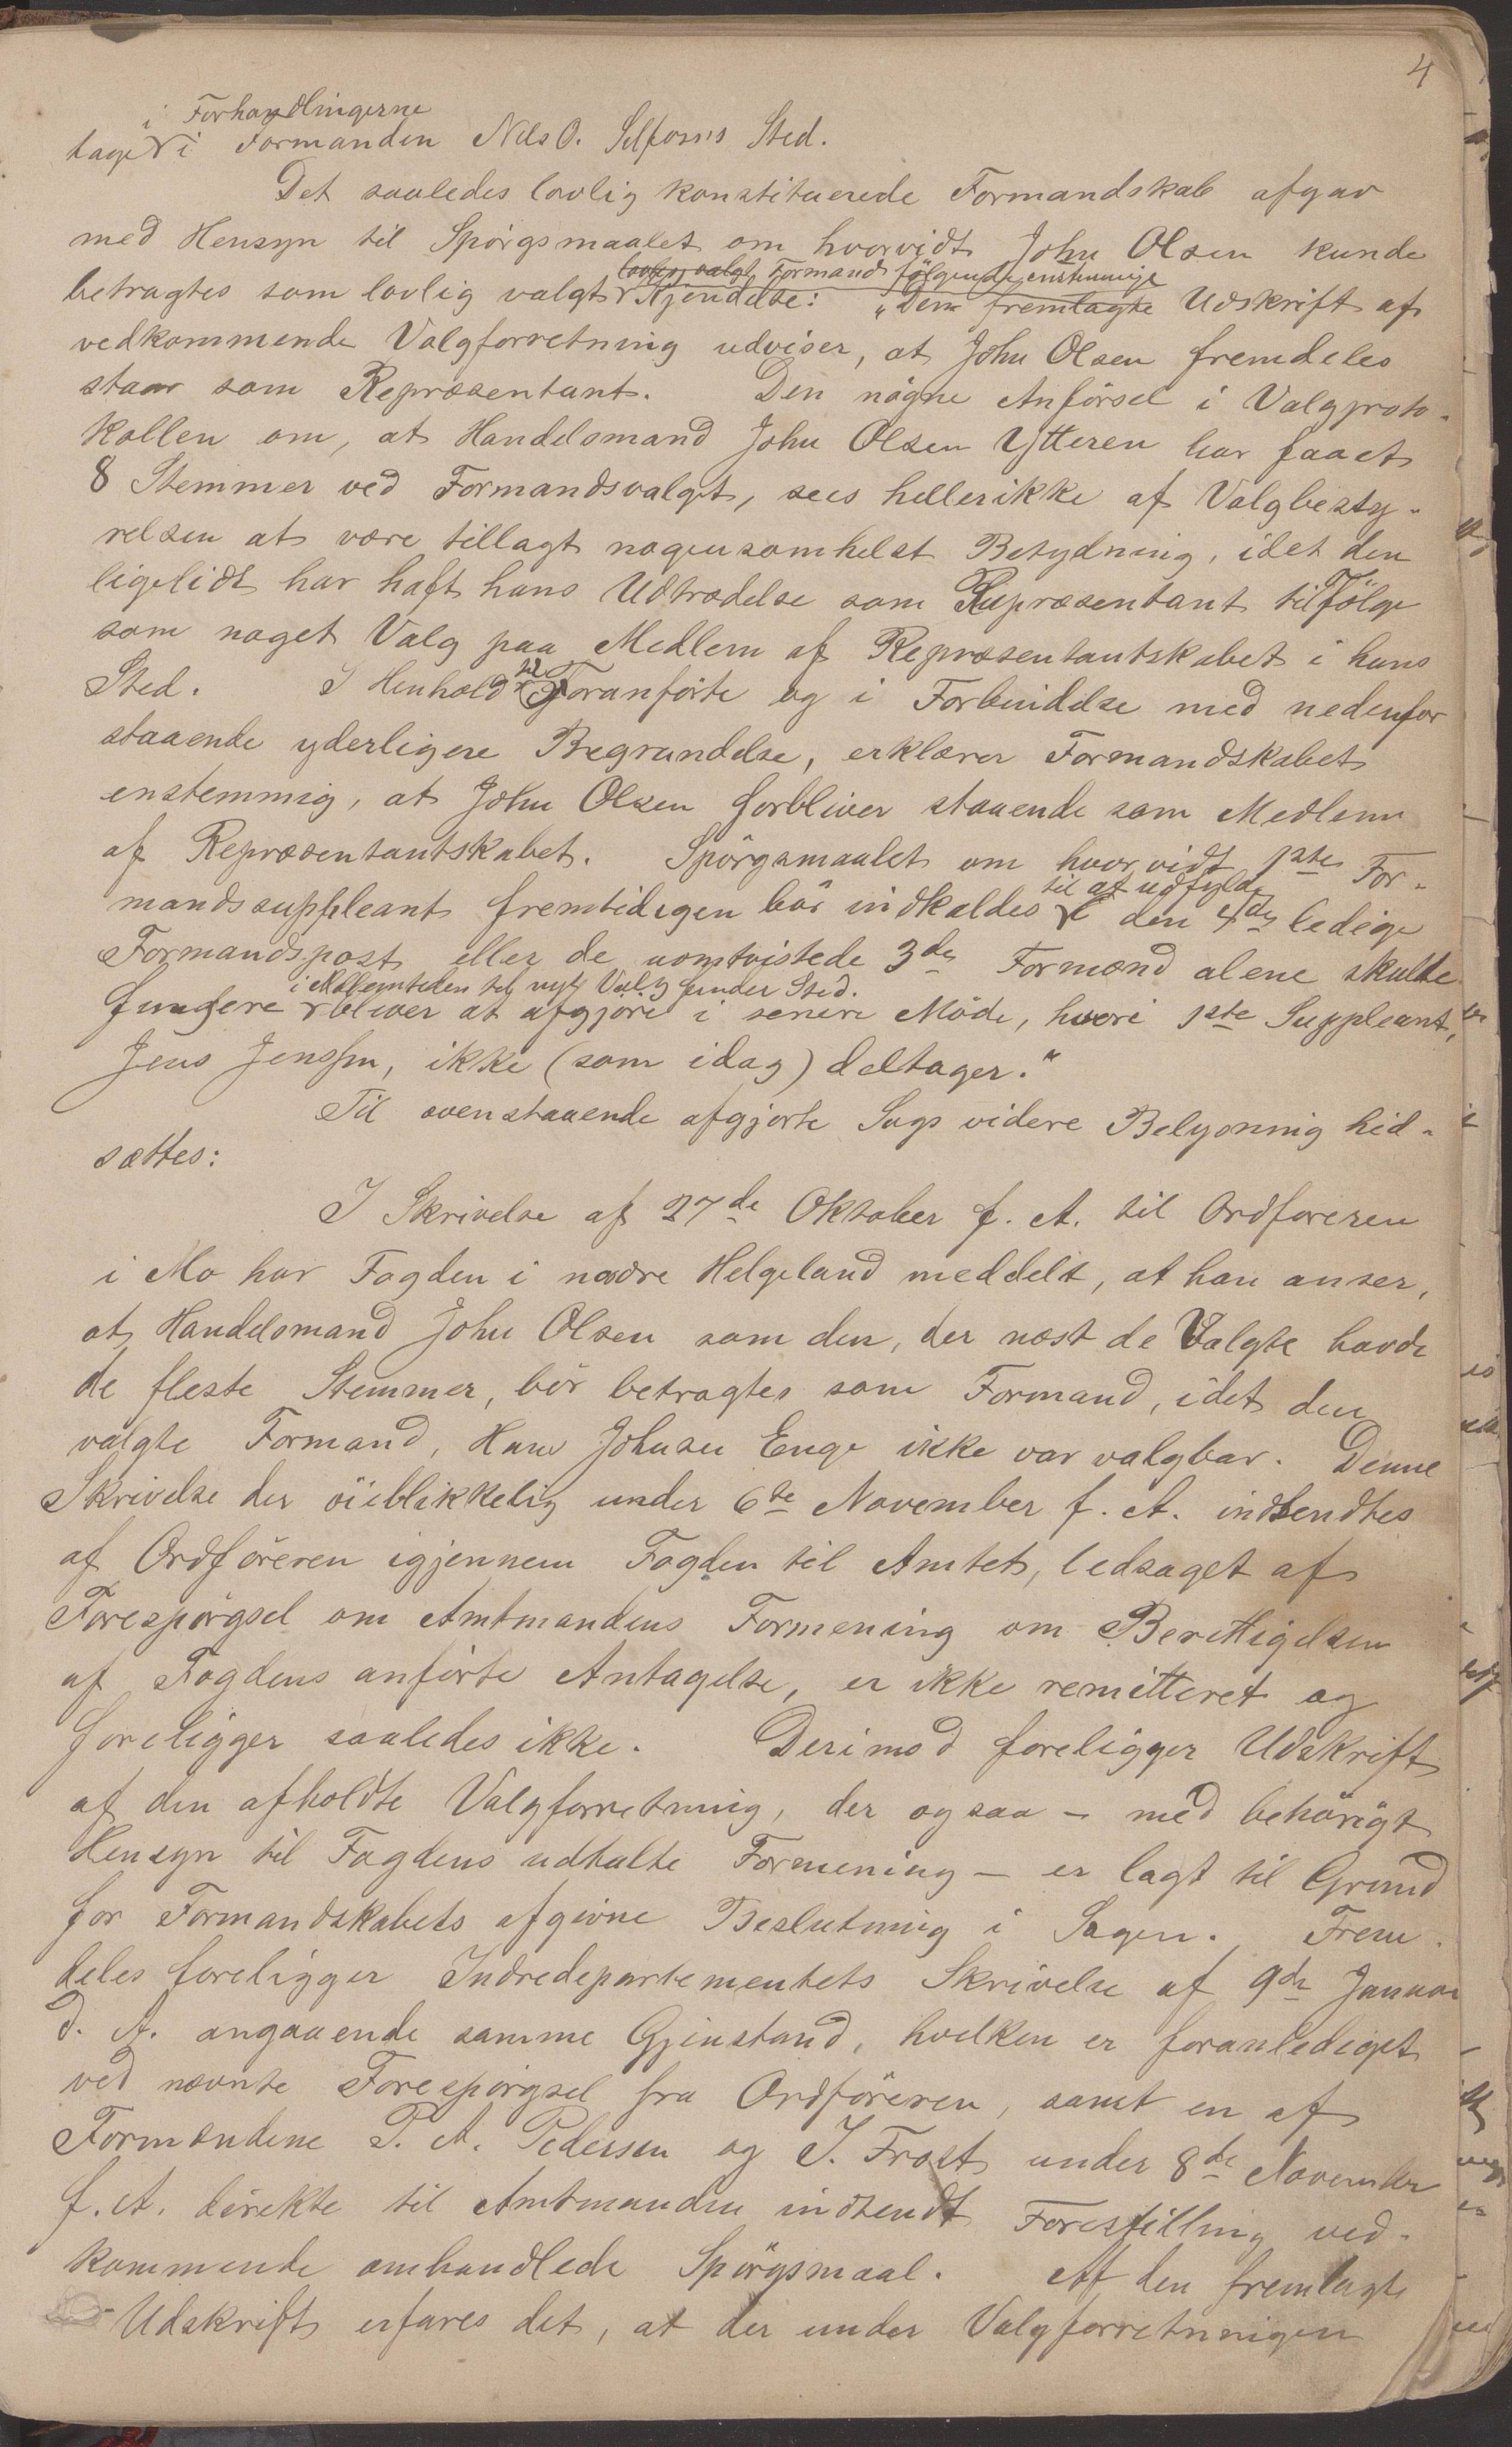 4
i Forhandlingerne
tager i Formanden Nils O. Selfors's Sted.
Det saaledes lovlig konstituerede Formandskab afgav
med Hensyn til Spörgsmaalet om hvorvidt John Olsen kunde
lovlig valgt Formand følgende enstemmige
betragtes som lovlig valgt Kjendelse: „Den fremlagte Udskrift af
vedkommende Valgforretning udviser, at John Olsen fremdeles
staar som Repræsentant. Den nögne Anförsel i Valgproto-
kollen om, at Handelsmand John Olsen Ytteren har faaet
8 Stemmer ved Formandsvalget, sees hellerikke af Valgbesty-
relsen at være tillagt nogensomhelst Betydning, idet den
ligelidt har haft hans Udtrædelse som Repræsentant tilfölge
som noget Valg paa Medlem af Repræsentantskabet i hans
Sted. I Henhold til Foranförte og i Forbindelse med nedenfor
staaende yderligere Begrundelse, erklærer Formandskabet
enstemmig, at John Olsen forbliver staaende som Medlem
af Repræsentantskabet. Spörgsmaalet om hvorvidt 1ste For-
til at udfylde
mandssuppleant fremtidigen bör indkaldes i den 4de ledige
Formandspost eller de uomtvistede 3de Formænd alene skulde
i Mellemtiden til nyt Valg finder Sted.
fungere bliver at afgjöre i senere Möde, hvori 1ste Suppleant,
Jens Jenssen, ikke (som idag) deltager."
Til ovenstaaende afgjorte Sags videre Belysning hid-
sættes:
I Skrivelse af 27de Oktober f. A. til Ordföreren
i Mo har Fogden i nordre Helgeland meddelt, at han anser,
at Handelsmand John Olsen som den, der næst de Valgte havde
de fleste Stemmer, bör betragtes som Formand, idet den
valgte Formand, Hans Johnsen Enge ikke var valgbar. Denne
Skrivelse der öieblikkelig under 6te November f. A. indsendtes
af Ordföreren igjennem Fogden til Amtet, ledsaget af
Forespörgsel om Amtmandens Formening om Berettigelsen
af Fogdens anförte Antagelse, er ikke remitteret og
foreligger saaledes ikke. Derimod foreligger Udskrift
af den afholdte Valgforretning, der ogsaa – med behörigt
Hensyn til Fogdens udtalte Formening – er lagt til Grund
for Formandskabets afgivne Beslutning i Sagen. Frem-
deles foreligger Indredepartementets Skrivelse af 9de Januar
d. A. angaaende samme Gjenstand, hvilken er foranlediget
ved nævnte Forespörgsel fra Ordföreren, samt en af
Formændene P. A. Pedersen og J. Frost under 8de November
f. A. direkte til Amtmanden indsendt Forestilling ved-
kommende omhandlede Spörgsmaal. Af den fremlagte
Udskrift erfares det, at der under Valgforretningen